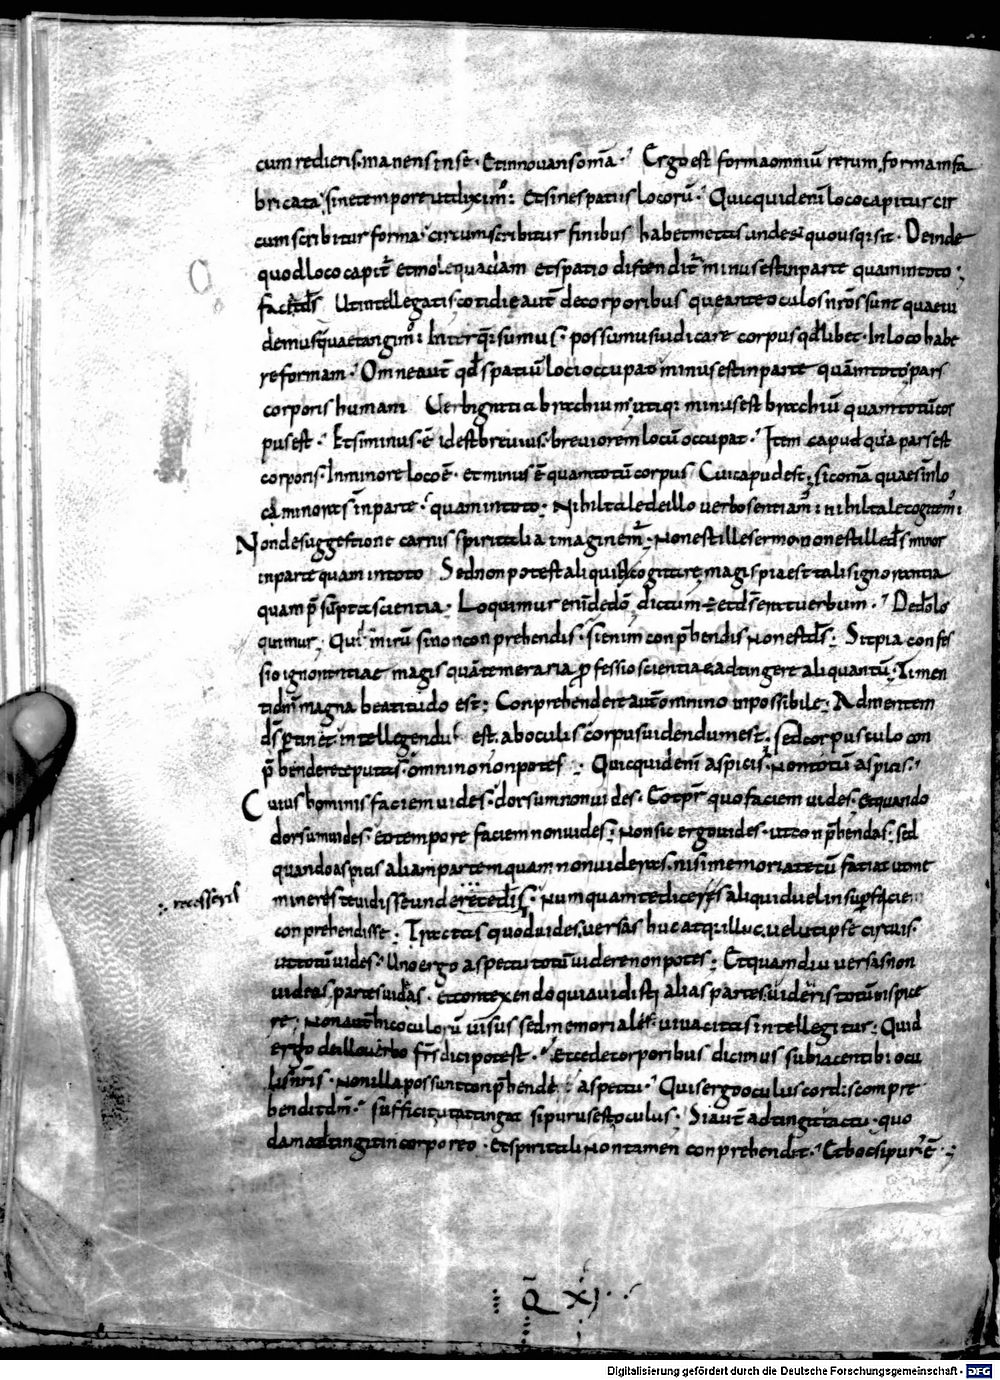 cum redieris · manens in se · Et innovans om̄a · Ergo est forma omniū rerum, forma infa
bricata · sine tempore ut diximꝰ · Et sine spatiis locorū · Quicquid enī loco capitur cir
cumscribitur forma · circumscribitur finibus habet metas unde & quousq; sit · Deinde
quod loco capit̄ et mole quadam et spatio distendit̄ minus est in parte quam in toto ·
faciat d̄s Ut intellegatis · cotidie aut̄ de corporibus que ante oculos nr̄os sunt quae ui
demus quae tangimꝰ · Inter q̄ sumus · possumus iudicare corpus qd̄libet · In loco habe
re formam · Omne aut̄ qd̄ spatiū loci occupat minus est in parte quā in toto pars
corporis humani Uerbi gratia brachium utiq; minus est brachiū quam totū cor
pus est · Et si minus · ē id est brevius · breviorem locū occupat · Item capud quia pars est
corporis · In minore loco ē · et minus ē quam totū corpus Cui capud est · sic om̄a quae sīn lo
ca minora s̄ in parte · quam in toto · Nihil tale de illo uerbo sentiamꝰ · nihil tale cogitemꝰ ·
Non de suggestione carnis spiritalia imaginem̄ · Non est ille sermo non est ille d̄s minor
in parte quam in toto Sed non potest aliquis cogitare, magis pia est talis ignorantia
quam p̄sūpta scientia · Loquimur enī de dō dictum ē et d̄s erat uerbum · De dō lo
quimur · Quid mirū si non conprehendis · si enim conp̄hendis non est d̄s · Sit pia confes
sio ignorantiae magis quā temeraria ꝓfessio scientiae adtingere aliquantū · Timen
ti dm̄ magna beatitudo est · Conprehendere aut̄ omnino inpossibile · Ad mentem
d̄s ꝑtinet intellegendus est · ab oculis corpus uidendum est · sed corpus oculo con
p̄hendere te putas · omnino non potes · Quicquid enī aspicis · non totū aspicis ·
Cuius hominis faciem uides · dorsum non uides · Eo tp̄r quo faciem uides · et quando
dorsum uides · eo tempore faciem non uides · Non sic ergo uides · ut conp̄hendas · sed
quando aspicis aliam partem quam non uideras, nisi memoria tecū faciat ut me
mineres te uidisse unde recedis · Numquam te diceres aliquid uel in suꝑfacie
· recesseris
conprehendisse · Tractas quod uides, uersas huc atq; illuc, uel ut ipse circuis ·
ut totū uides · Uno ergo aspectu totū uidere non potes · Et quamdiu uersas non
uideas, partes uidas · et contexendo quia uidisti alias partes uideris totū inspice
re · Non aut̄ hic oculorū uisus sed memoriale uiuacitas intellegitur · Quid
ergo de illo uerbo fr̄s dici potest · Ecce de corporibus dicimus subiacentib; ocu
lis nr̄is · Non illa possunt conp̄hendere aspectu · Quis ergo oculus cordis compre
hendit dm̄ · sufficit ut attingat si purus est oculus · Si aut̄ adtingit tactu · quo
dam adtingit incorporeo · Et spiritali non tamen conprehendit · Et hoc si purꝰ ē ·
Q̄ XI ·
Digitalisierung gefördert durch die Deutsche Forschungsgemeinschaft · DFG